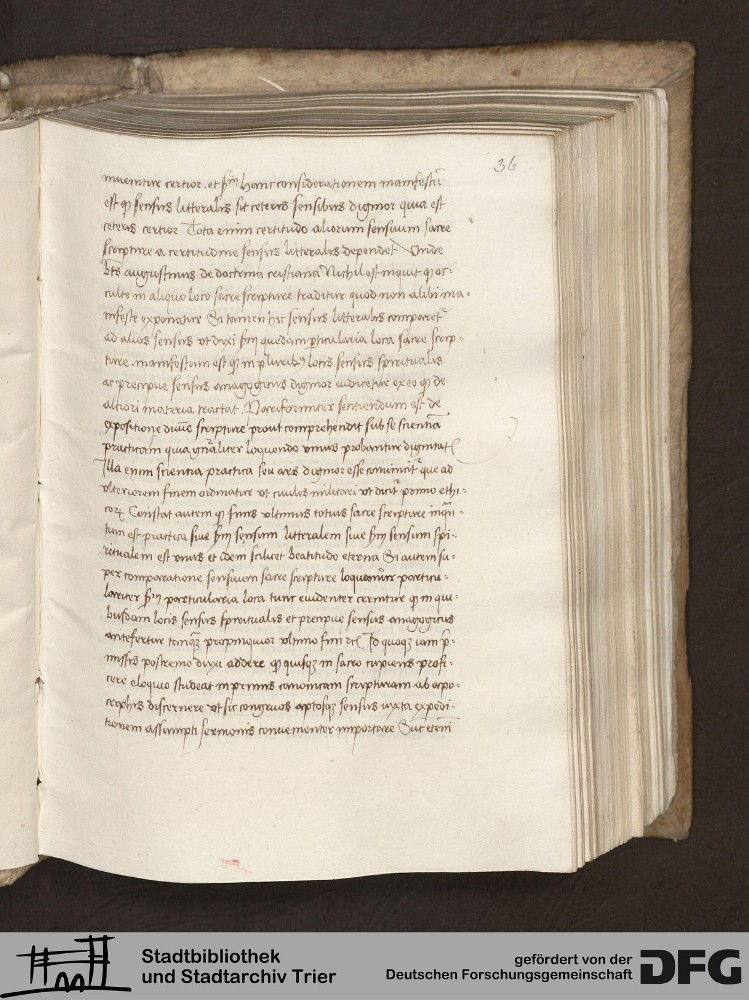 36
inuenitur certior. et scdm hanc considerationem manifestu
est qp sensus litteralis sit ceteris sensibus dignior quia est
ceteris certior Tota enim certitudo aliorum sensuum sacre
scripture a certitudine sensus litteralis dependet Unde
bts augustinus de doctrina cristiana Nichil est inquit qp oc:
culte in aliquo loco sacre scripture traditur quod non alibi ma:
nifeste exponatur Si tamen hic sensus litteralis comparet
ad alios sensus ut dixi scdm quedam pticularia loca sacre scrip:
ture manifestum est qp in pluribus locis sensus spiritualis
ac precipue sensus anagogicus dignior iudicetur ex eo qp de
altiori materia tractat. sentiendum est de
expositione diuine scripture prout comprehendit sub se scientia
practicam quia gnaliter loquendo unius probantur dignitat
Illa enim scientia practica seu ars dignior esse conuincit que ad
ulteriorem finem ordinatur ut ciuilis militari ut dicit primo ethi:
cor Constat autem qp finis ultimus totius sacre scripture inqn:
tum est practica siue scdm sensum litteralem siue scdm sensum spi:
ritualem est unus et idem scilicet beatitudo eterna Si autem su:
per comparatione sensuum sacre scripture loquamur particu:
lariter scdm particularia loca tunc euidenter cernitur qp in qui:
busdam locis sensus spiritualis et precipue sensus anagogicus
antefertur tamqz propinquior ultimo fini etc Id quoqz iam p:
missis postremo duxi addere qp quisqz in sacro cupiens profi:
cere eloquio studeat inprimis canonicam scripturam ab apo:
crophis discernere ut sic congruos aptosqz sensus iuxta expedi:
tionem assumpti sermonis conuenienter importare Sut etem
Stadtbibliothek
und Stadtarchiv Trier
gefördert von der
Deutschen Forschungsgemeinschaft
DFG